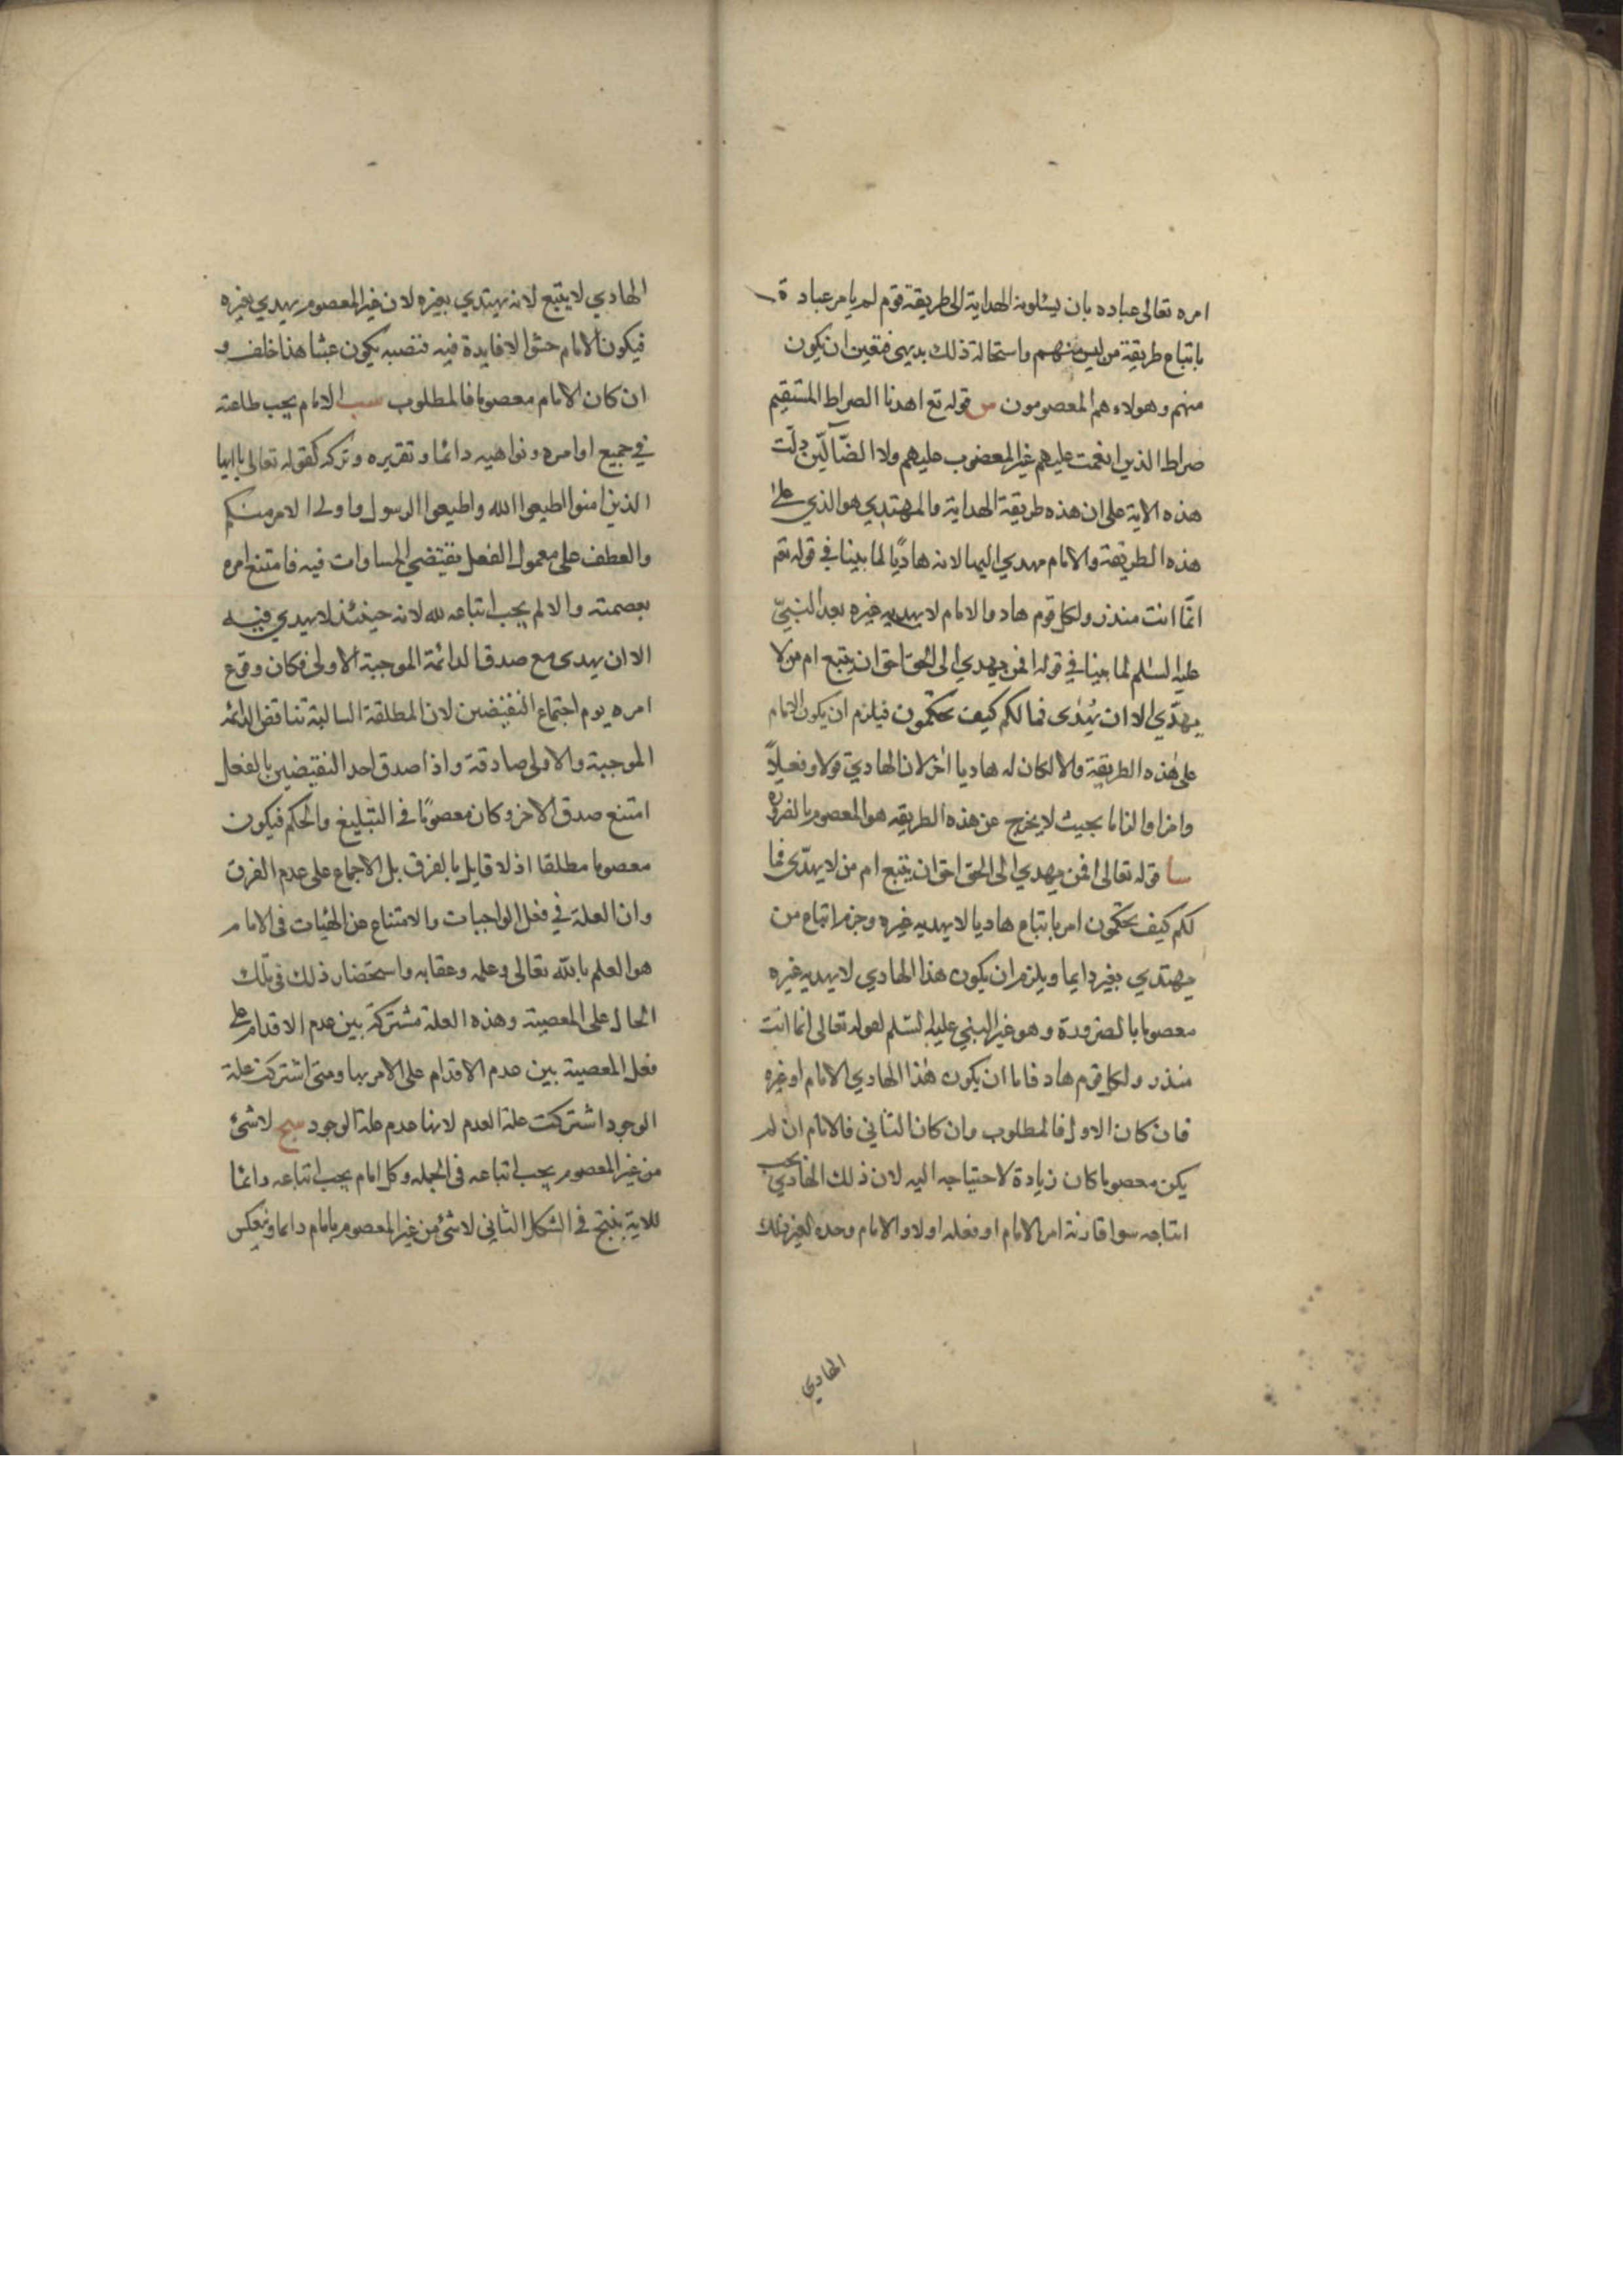 امره تعالى عباده بان يسئلونه الهداية الى طريقة قوم لم يامر عباده
باتباع طريقة من ليس منهم واستحالة ذلك بديهي فتعين ان يكون
منهم وهولاء هم المعصومون س قوله تع اهدنا الصراط المستقيم
صراط الذين انعمت عليهم غير المغضوب عليهم ولا الضآلّين دلّت
هذه الاية على ان هذه طريقة الهداية والمهتدي هو الذي على
هذه الطريقة والامام مهدي اليها لانه هاديًا لما بينا في قوله تع
انّما انت منذر ولكل قوم هاد والامام لا يهديه غيره بعد النبيّ
عليه السّلم لما بينا في قوله افمن يهدي الى الحق احق ان يتبع ام من لا
يهدّي الا ان يُهدى فما لكم كيف تحكمون فيلزم ان يكون الامام
على هذه الطريقة والا لكان له هاديا اخر لان الهادي قولا وفعلاً
بحيث لا يخرج عن هذه الطريقه هو المعصوم بالضرورة
سا قوله تعالى افمن يهدي الى الحق احق ان يتبع ام من لا يهدّي فما
لكم كيف تحكمون امر باتباع هاديا لا يهديه غيره وحرم اتباع من
يهتدي بغير دايما ويلزم ان يكون هذا الهادي لا يهديه غيره
معصوما بالضرورة وهو غير النبي عليه السّلم لقوله تعالى انما انت
منذر ولكل قوم هاد فاما ان يكون هذا الهادي الامام او غيره
فان كان الاول فالمطلوب وان كان الثاني فالامام ان لم
يكن معصوما كان زيادة لاحتياجه اليه لان ذلك الهادي يجب
اتباعه سوا قارنه امر الامام او فعله اولا والامام وحده لغير ذلك
الهادي
الهادي لا يتبع لانه يهتدي بغيره لان غير المعصوم يهدي بغيره
فيكون الامام حشوا لا فايدة فيه فنصبه يكون عبثا هذا خلف و
ان كان الامام معصوما فالمطلوب سب الامام يجب طاعته
في جميع اوامره ونواهيه دائما وتقريره وتركه كقوله تعالى يا ايها
الذين امنوا اطيعوا الله واطيعوا الرسول واولى الامر منكم
والعطف على معمول الفعل يقتضي المساوات فيه فامتنع امره
بعصمته والا لم يجب اتباعه لله لانه حينئذ لا يهدي فيه
الا ان يهدى مع صدق الدائمة الموجبة الاولى فكان وقوع
امره يوم اجتماع النقيضين لان المطلقة السالبة تناقض الدائمه
الموجبة والاولى صادقة واذا صدق احد النقيضين بالفعل
امتنع صدق الاخر وكان معصومًا في التبليغ والحكم فيكون
معصوما مطلقا اذ لا قايل بالفرق بل الاجماع على عدم الفرق
وان العلة في فعل الواجبات والامتناع عن في الامام
هو العلم بالله تعالى وعلمه وعقابه واستحضار ذلك في تلك
الحال على المعصية وهذه العلة مشتركة بين عدم الاقدام على
فعل المعصية بين عدم الاقدام على الامر بها ومتى اشتركت علة
الوجود اشتركت علة العدم لانها عدم علة الوجود سج لا شئ
من غير المعصوم يجب اتباعه في الجمله وكل امام يجب اتباعه دائما
للاية ينتج في الشكل الثاني لا شئ من غير المعصوم بامام دايما وينعكس